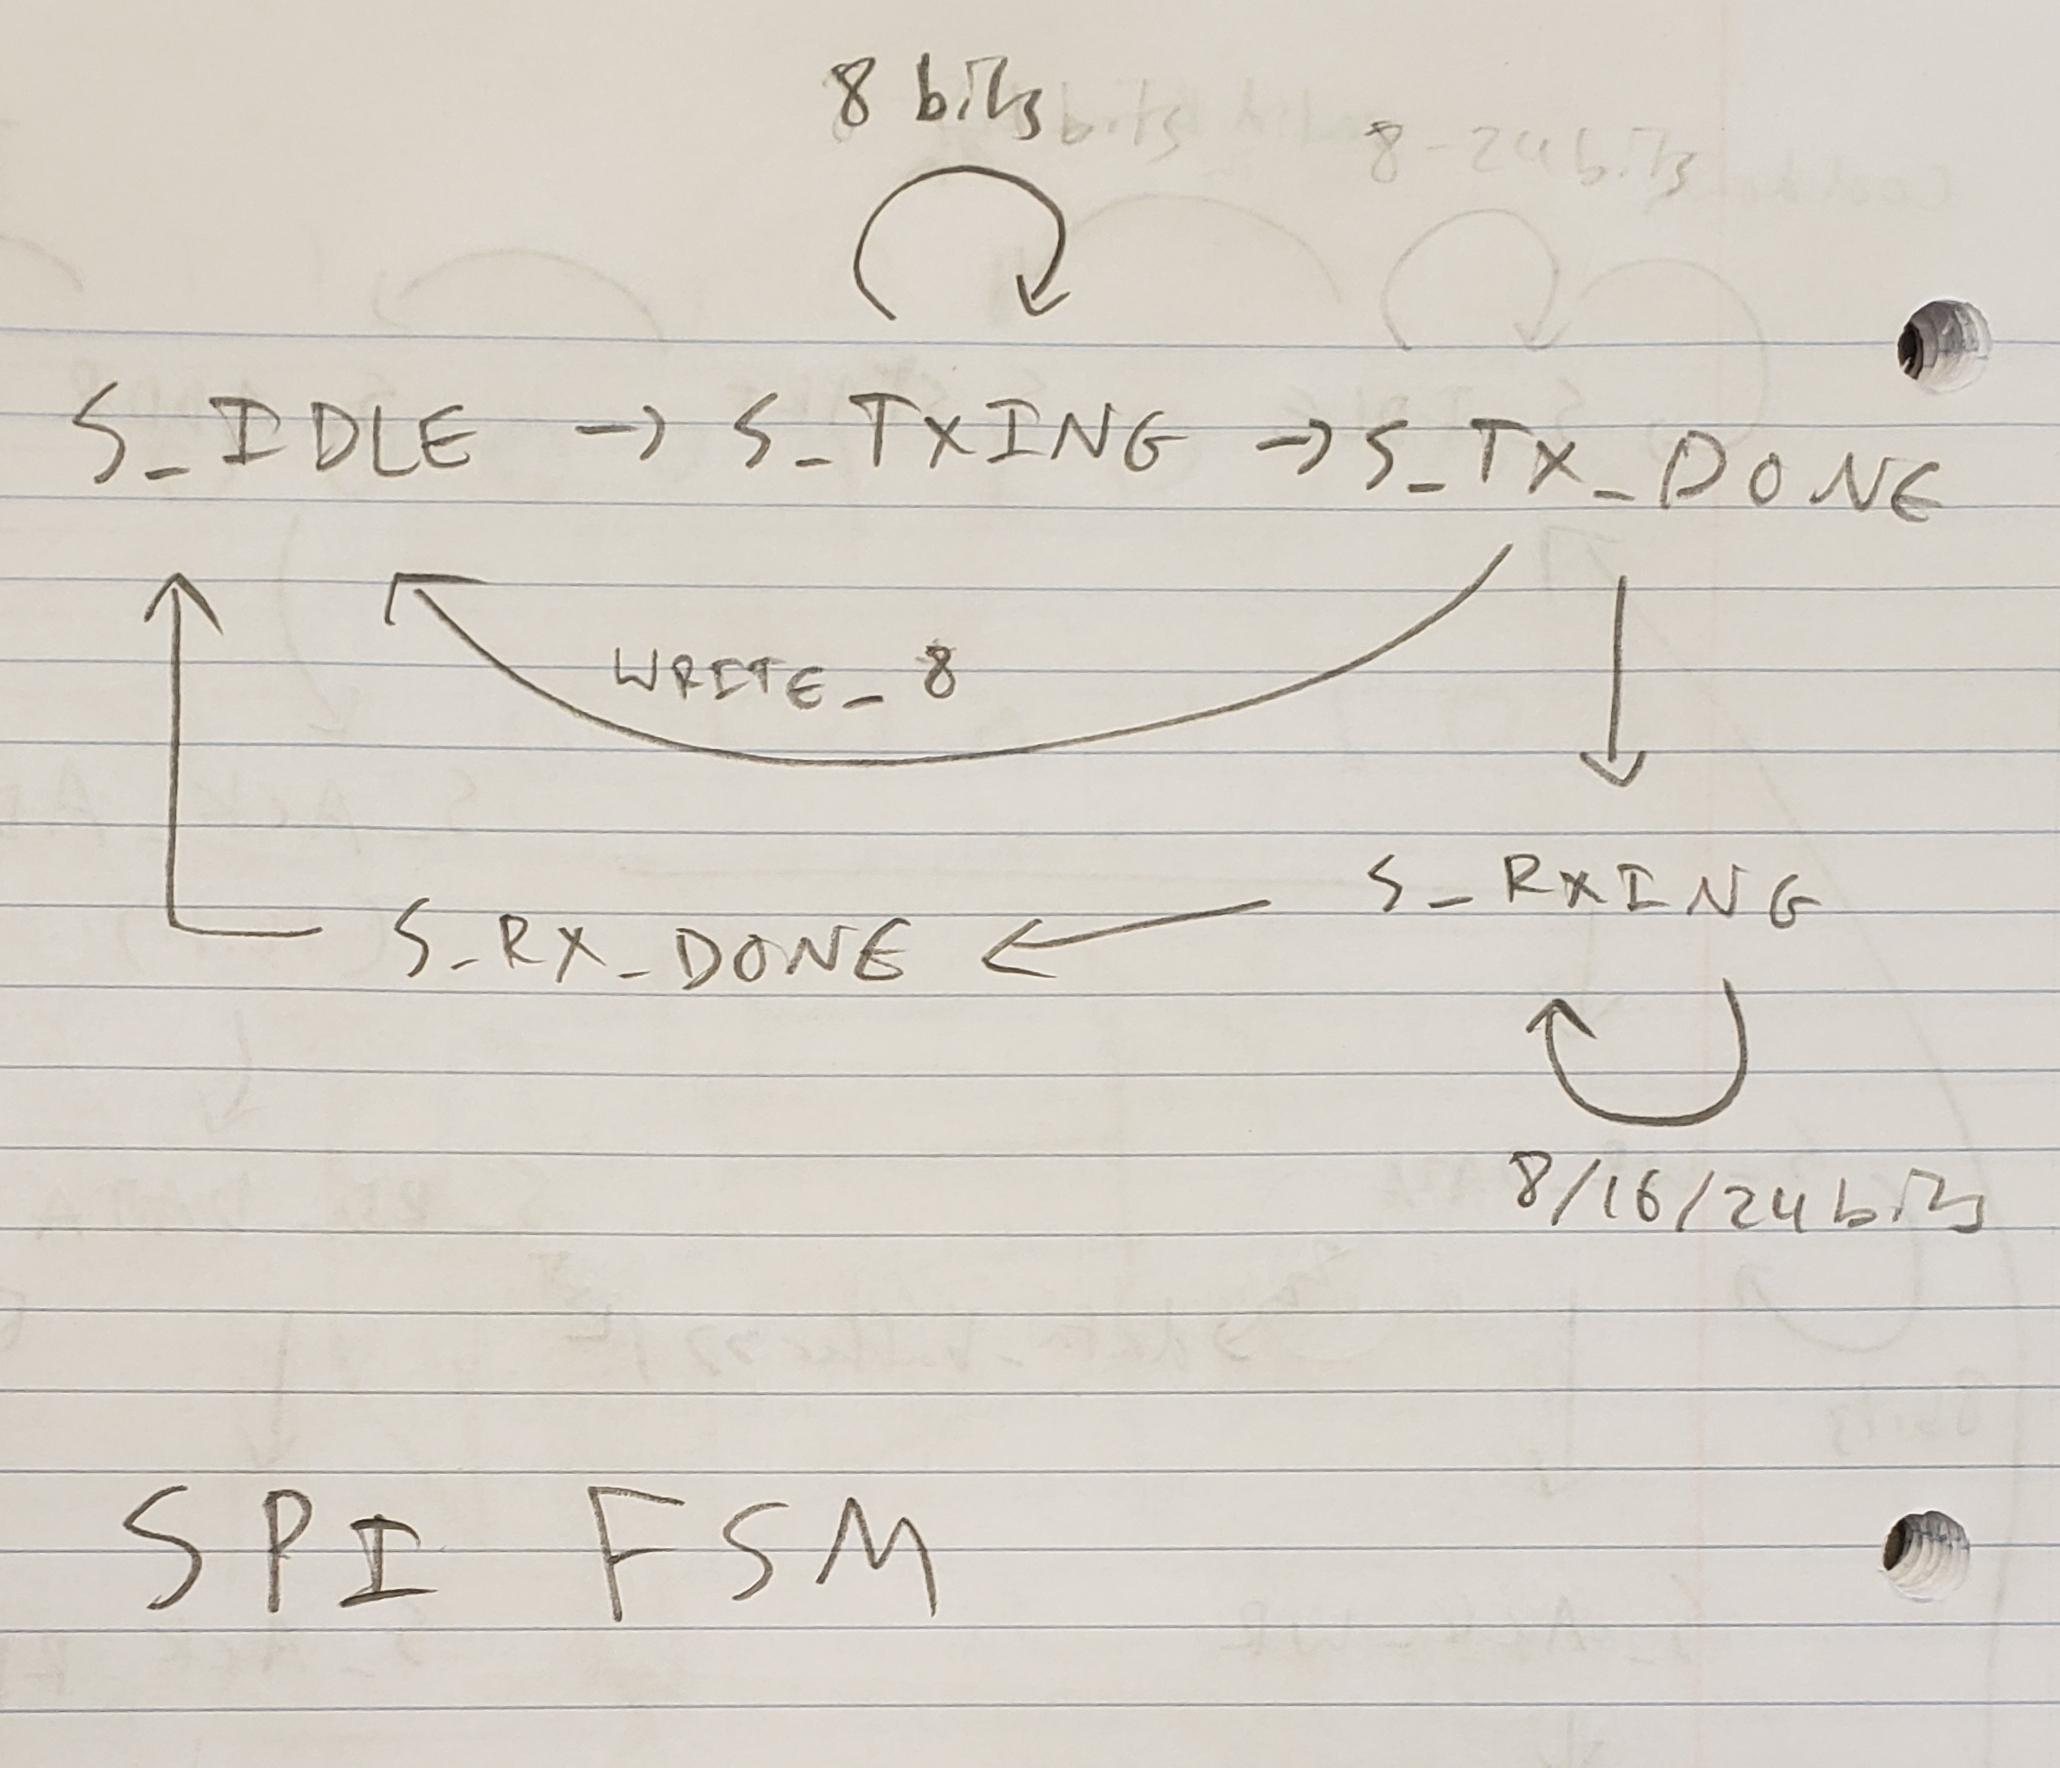 8 bits
S_IDLE → S_TXING → S_TX_DONE
WRITE_8
S_RXING
S_RX_DONE
8/16/24 bits
SPI FSM